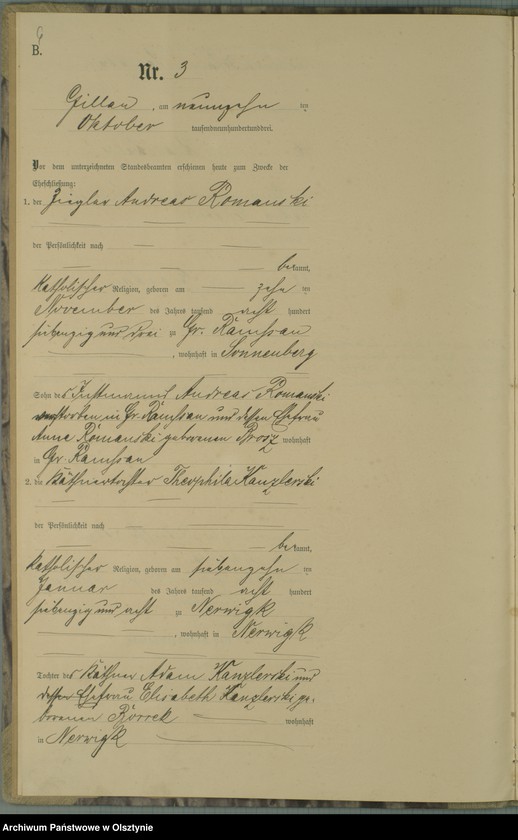 B.
Nr. 3
Gillau, am neunzehn ten
Oktober tausendneunhundertunddrei.
Vor dem unterzeichneten Standesbeamten erschienen heute zum Zwecke der
Eheschließung:
1. der Ziegler Andreas Romanski
der Persönlichkeit nach
bekannt,
katholischer Religion, geboren am zehn ten
November des Jahres tausend acht hundert
siebenzig und drei zu Gr. Ramsau
, wohnhaft in Sonnenberg
Sohn des Instmanns Andreas Romanski
verstorben in Gr. Ramsau und dessen Ehefrau
Anna Romanski geborenen wohnhaft
in Gr. Ramsau
2. die Käthnertochter Theophila Kanzlerski
der Persönlichkeit nach
bekannt,
katholischer Religion, geboren am siebenzehn ten
Januar des Jahres tausend acht hundert
siebenzig und acht zu Nerwigk
, wohnhaft in Nerwigk
Tochter des Käthner Adam Kanzlerski und
dessen Ehefrau Elisabeth Kanzlerski ge-
borenen wohnhaft
in Nerwigk
Archiwum Państwowe w Olsztynie